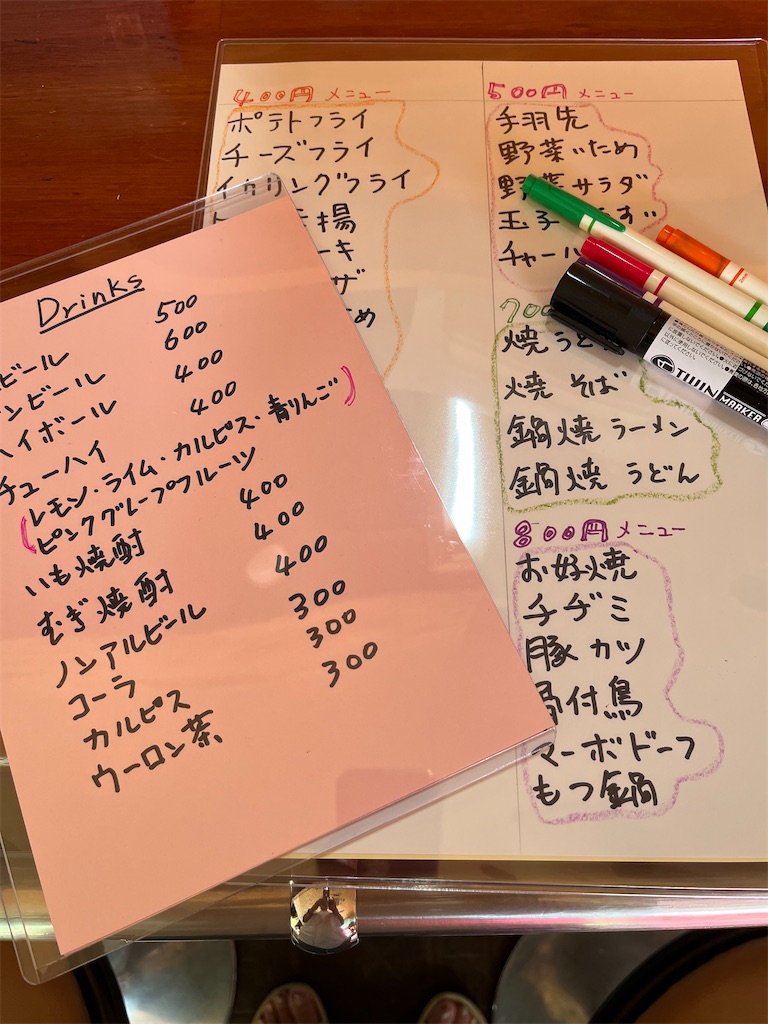 400円 メニュー
ポテトフライ
チーズフライ
イカリングフライ
揚
キ
ザ
め
500円 メニュー
手羽先
野菜いため
野菜サラダ
玉子
チャー
700
焼うど
焼そば
鍋焼ラーメン
鍋焼うどん
800円 メニュー
お好焼
チヂミ
豚カツ
骨付鳥
マーボドーフ
もつ鍋
Drinks
ビール 500
ンビール 600
ハイボール 400
チューハイ 400
(レモン・ライム・カルピス・青りんご
ピンクグレープフルーツ)
いも焼酎 400
むぎ焼酎 400
ノンアルビール 400
コーラ 300
カルピス 300
ウーロン茶 300
TWIN MARKER